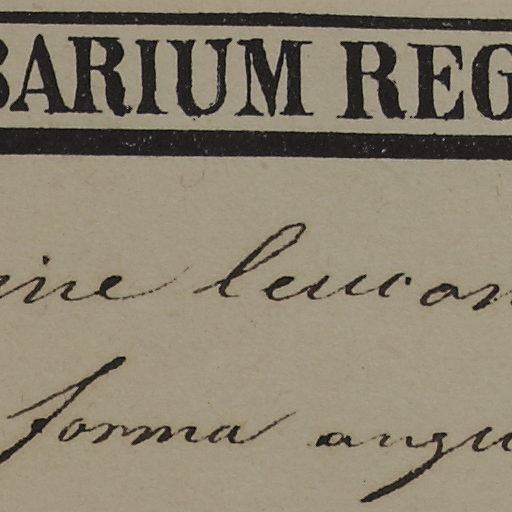 BARIUM REG
ine leucon
forma angu